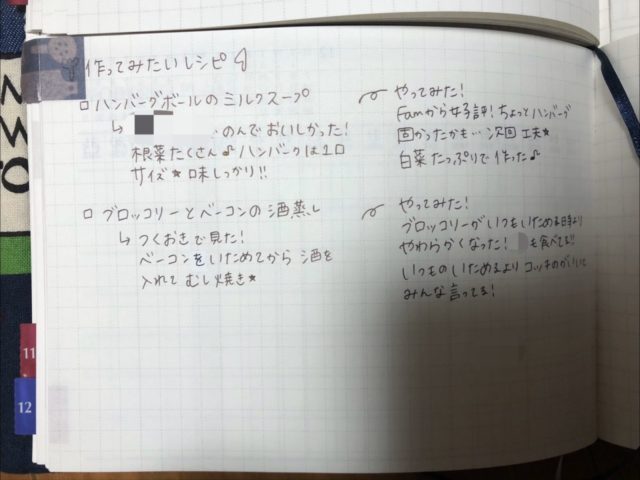 作ってみたいレシピ
□ ハンバーグボールのミルクスープ
↳ のんでおいしかった!
根菜たくさん♪ハンバーグは1口
サイズ★味しっかり!!
やってみた!
Famから好評!ちょっとハンバーグ
固かったかも…次回工夫★
白菜たっぷりで作った♪
□ ブロッコリーとベーコンの酒蒸し
↳ つくおきで見た!
ベーコンをいためてから酒を
入れてむし焼き★
やってみた!
ブロッコリーがいつもいためる時より
やわらかくなった! も食べてる!!
いつものいためるよりコッチのがいいって
みんな言ってる!
11
12